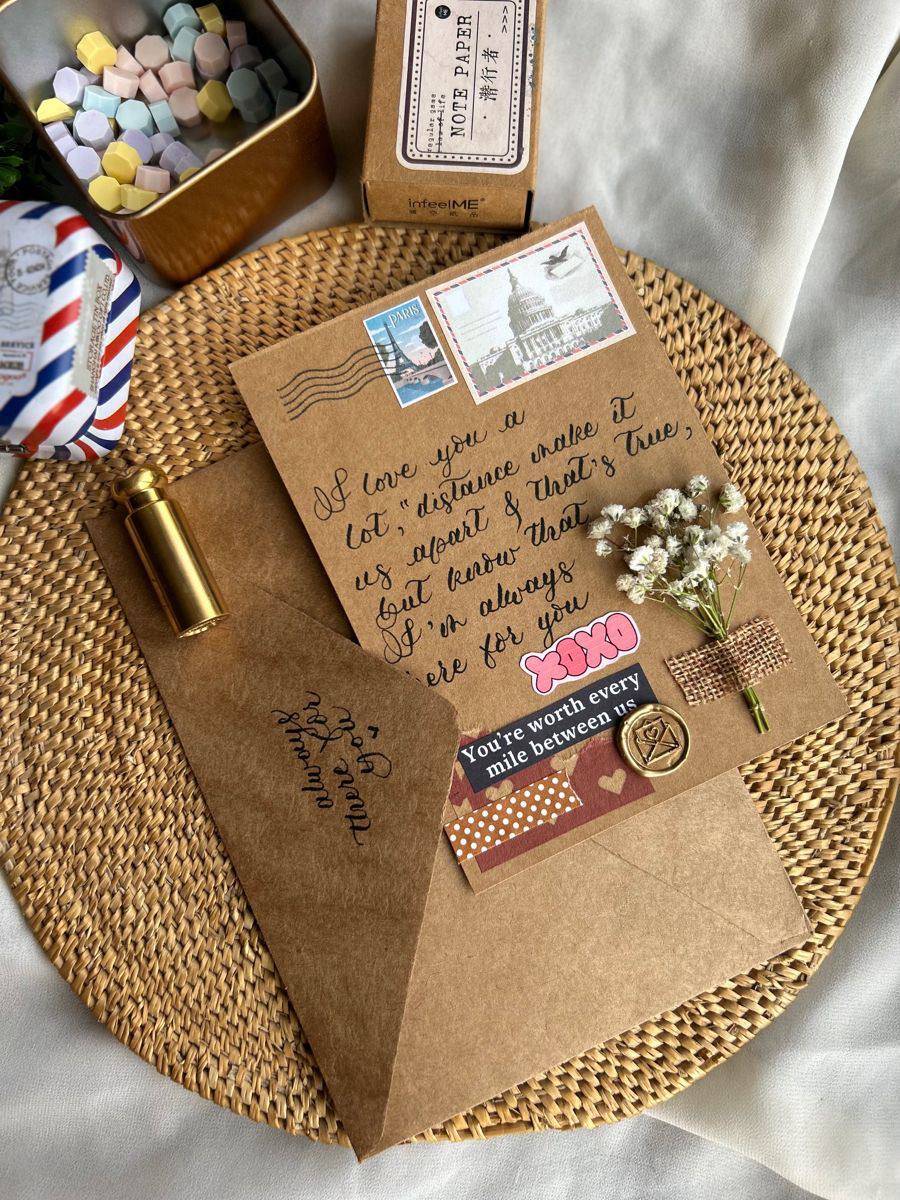 NOTE PAPER
·潜行者·
regular game
law of life
infeelME
PARIS
I love you a
lot, "distance make it
us apart & that's true,
but know that
I'm always
here for you
XOXO
You're worth every
mile between us
always
there for
you
SERVICE